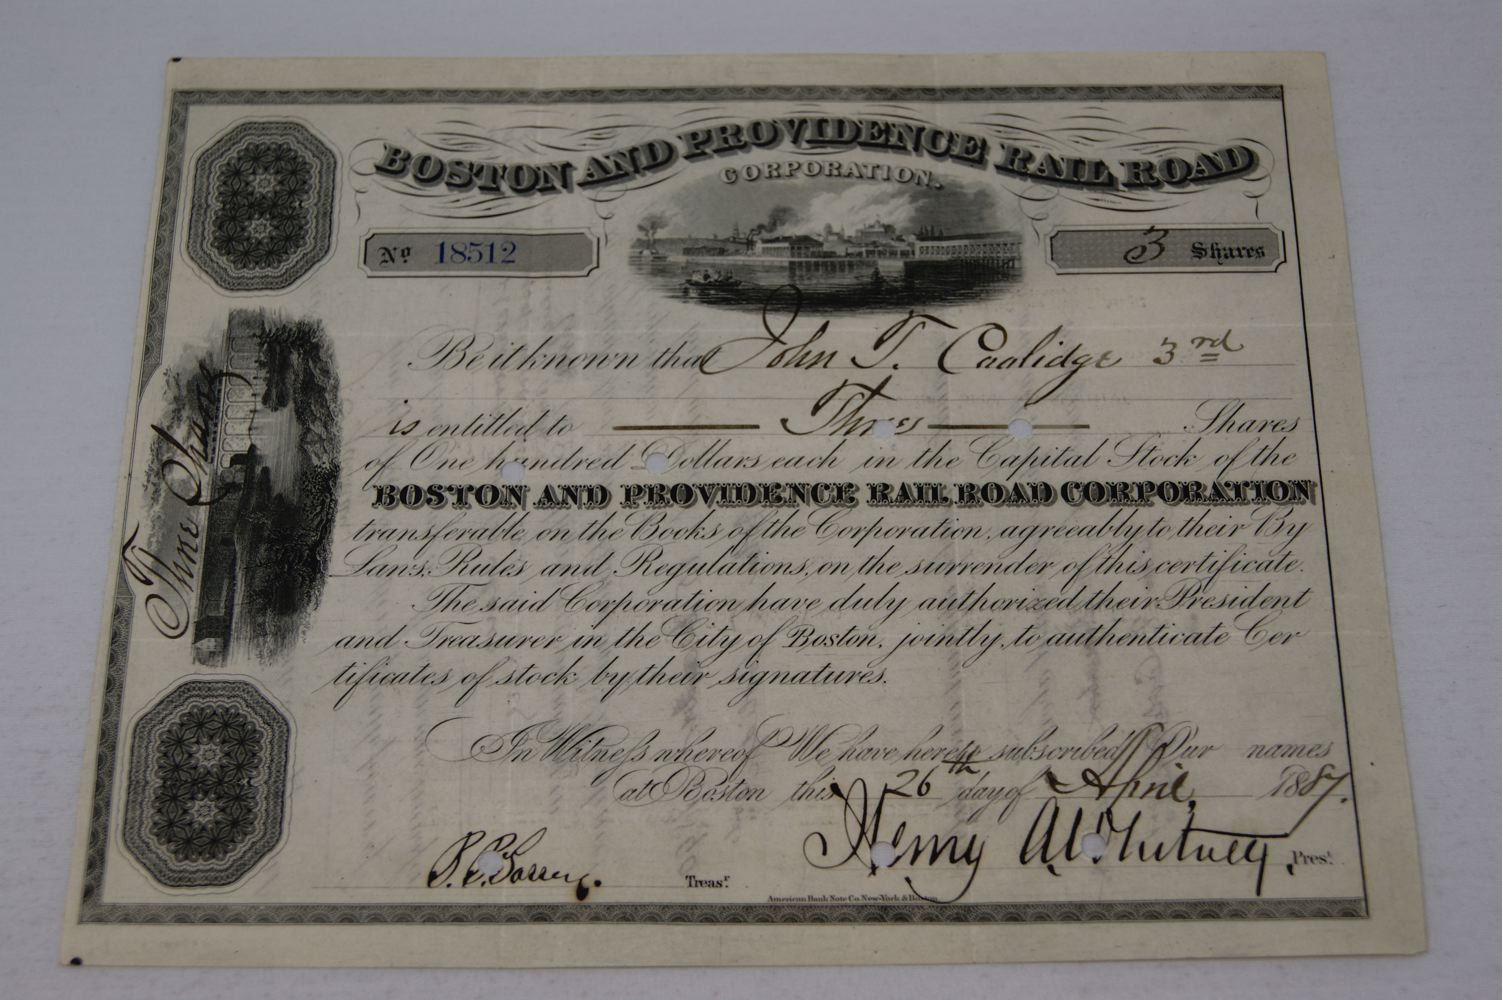 BOSTON AND PROVIDENCE RAIL ROAD
CORPORATION.
No 18512
3 Shares
Three Shares
Be it known that John T. Coolidge 3rd
is entitled to Three Shares
of One hundred Dollars each in the Capital Stock of the
BOSTON AND PROVIDENCE RAIL ROAD CORPORATION
transferable on the Books of the Corporation, agreeably to their By
Laws, Rules and Regulations, on the surrender of this certificate.
The said Corporation have duly authorized their President
and Treasurer in the City of Boston, jointly, to authenticate Cer
tificates of stock by their signatures.
In Witness whereof We have hereto subscribed Our names
at Boston this 26th day of April, 1887.
Treasr.
Henry A. Whitney, Prest.
American Bank Note Co. New-York & Boston